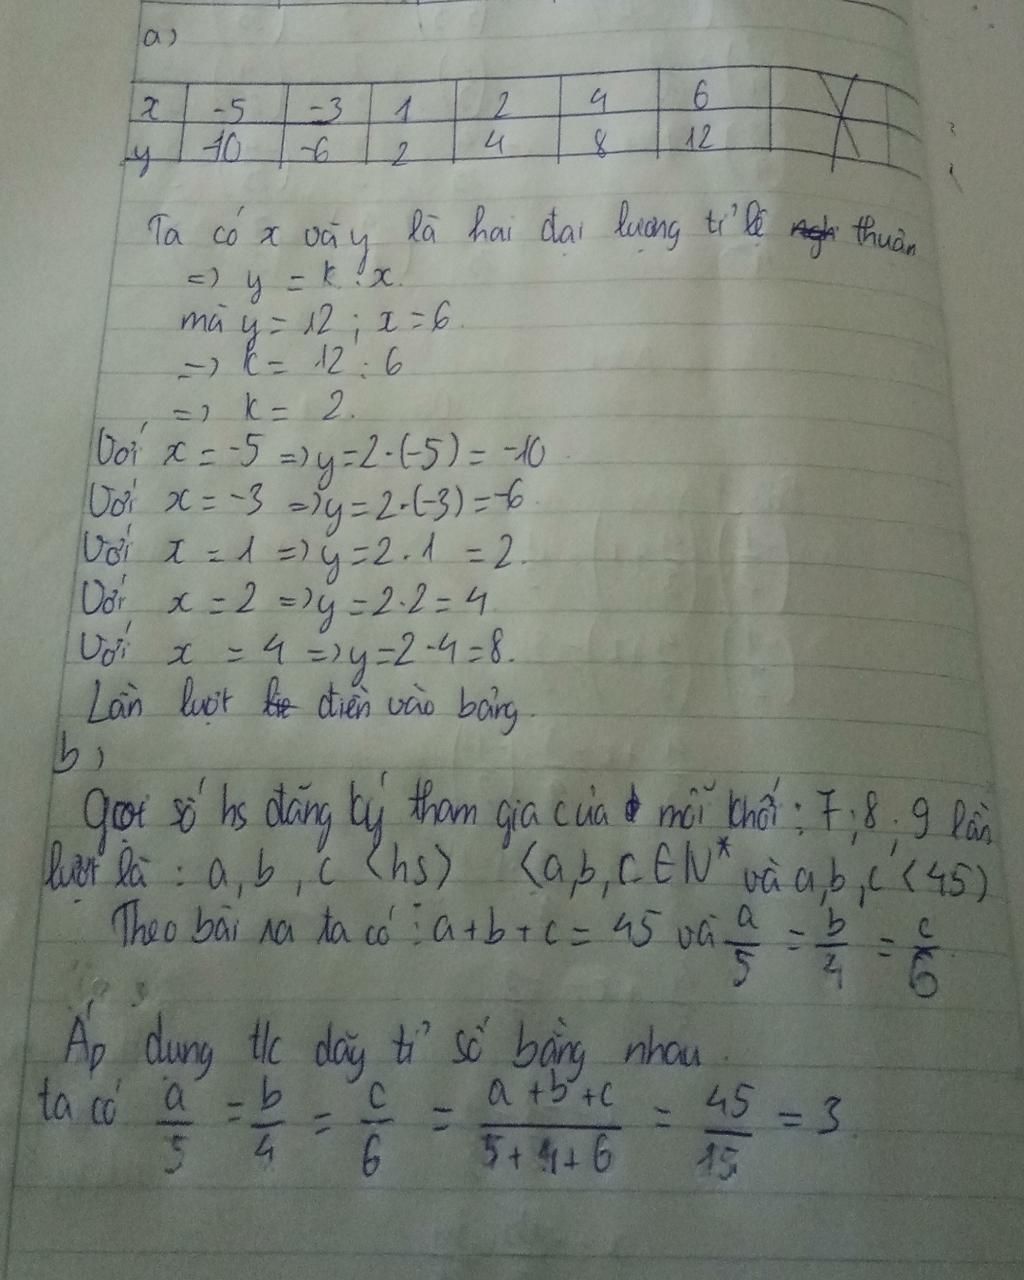 a)
x -5 -3 1 2 4 6
y -10 -6 2 4 8 12
Ta có x và y là hai đại lượng tỉ lệ thuận
=> y = k.x.
mà y = 12 ; x = 6.
=> k = 12 : 6
=> k = 2.
Với x = -5 => y = 2.(-5) = -10
Với x = -3 => y = 2.(-3) = -6
Với x = 1 => y = 2.1 = 2.
Với x = 2 => y = 2.2 = 4
Với x = 4 => y = 2.4 = 8.
Lần lượt điền vào bảng.
b)
Gọi số hs đăng ký tham gia của mỗi khối : 7 ; 8 ; 9 lần
lượt là : a, b, c (hs) (a, b, c ∈ N* và a, b, c < 45)
Theo bài ra ta có : a + b + c = 45 và a/5 = b/4 = c/6
Áp dụng t/c dãy tỉ số bằng nhau.
ta có a/5 = b/4 = c/6 = (a + b + c)/(5 + 4 + 6) = 45/15 = 3